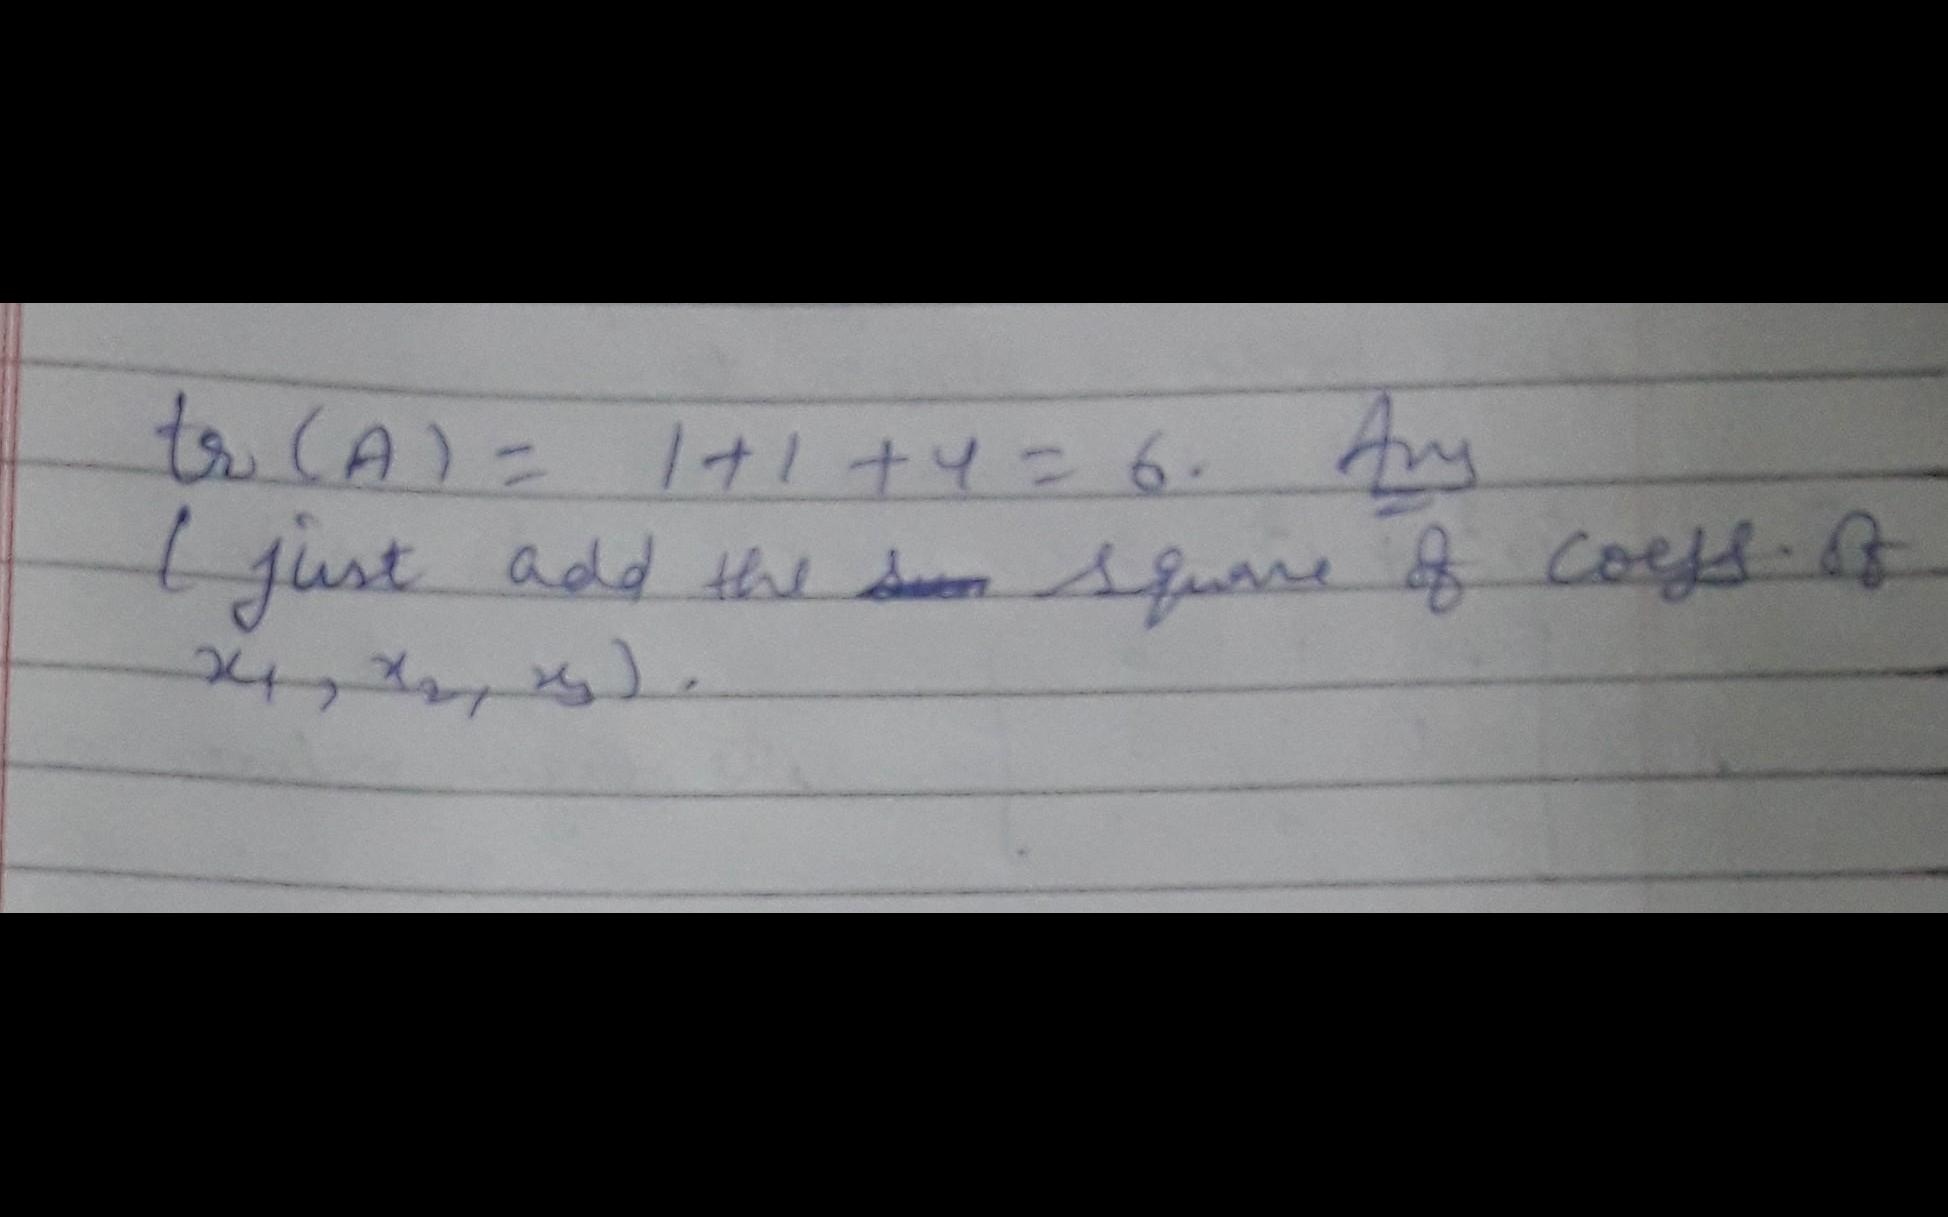 tr(A) = 1+1+4 = 6. Ans
(just add the square of coeff. of
x1, x2, x3).